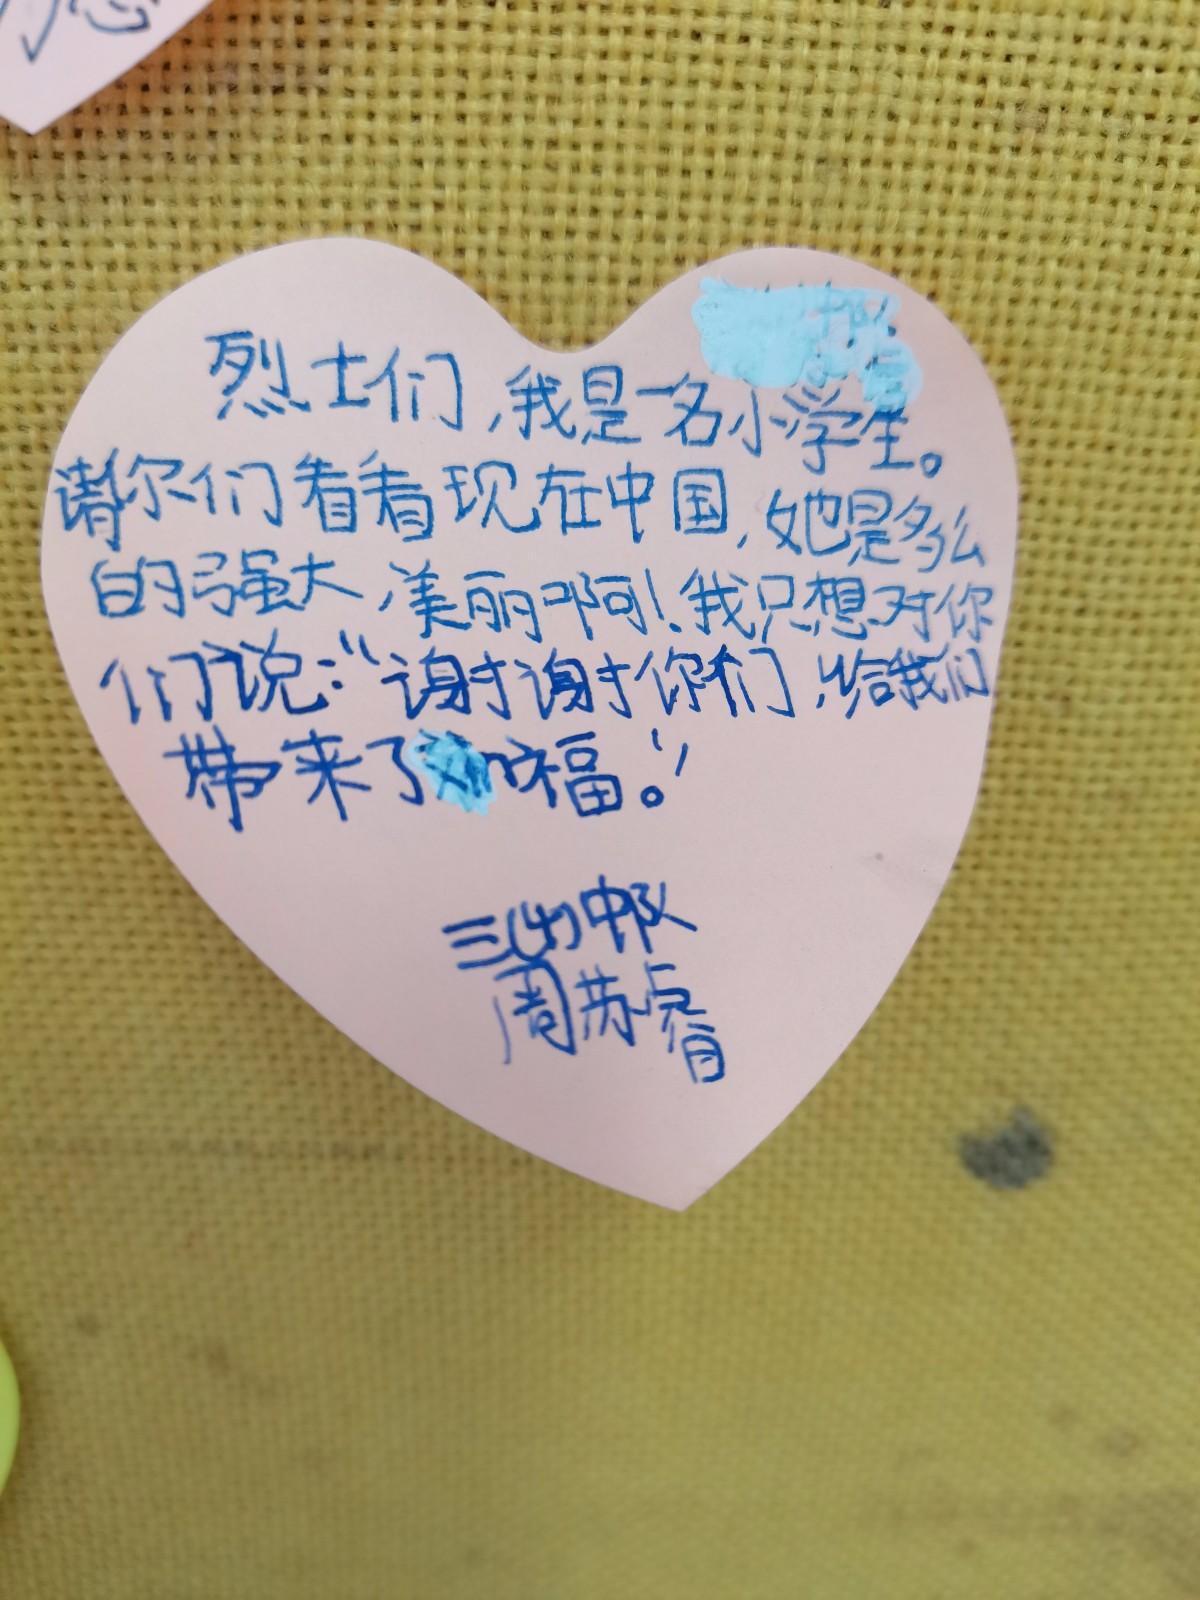 烈士们,我是一名小学生。
请你们看看现在中国,她是多么
的强大,美丽啊!我只想对你
们说:“谢谢你们,给我们
带来了 福。”
三(4)中队
周苏睿